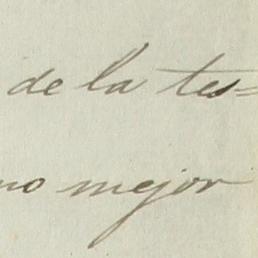 de la tes=
no mejor